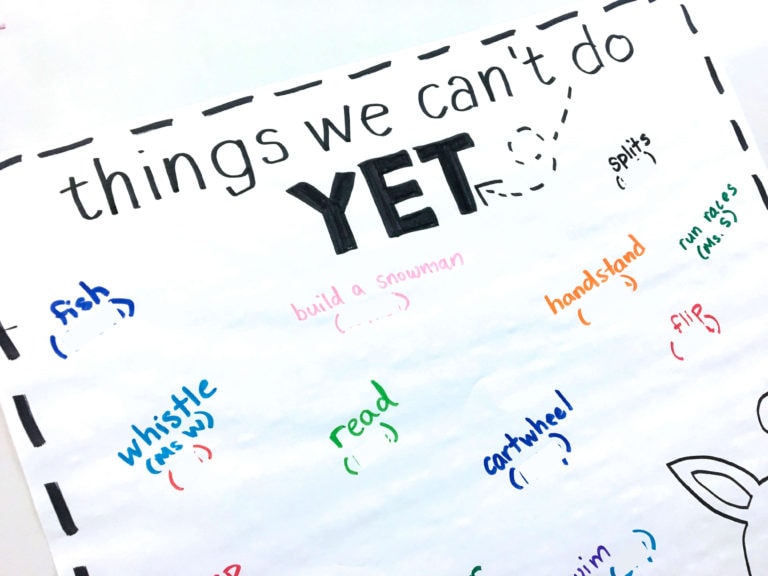 things we can't do
YET
splits
( )
run races
(Ms. S)
fish
( )
build a snowman
( )
handstand
( )
flip
( )
whistle
(Ms W)
( )
read
( )
cartwheel
( )